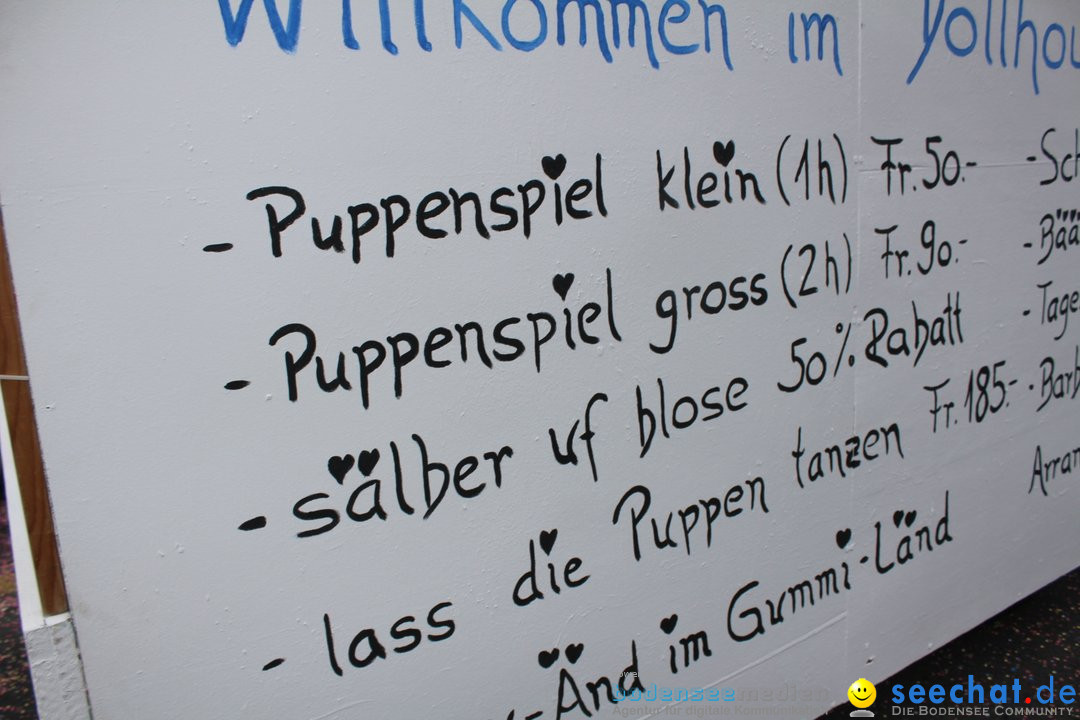 Willkommen im Dollhou
- Puppenspiel klein (1h) Fr. 50.-
- Puppenspiel gross (2h) Fr. 90.-
- sälber uf blose 50% Rabatt
- lass die Puppen tanzen Fr. 185.-
- Änd im Gummi-Länd
- Sch
- Bää
- Tage
- Barb
Arran
bodenseemedien
seechat.de
Die Bodensee Community